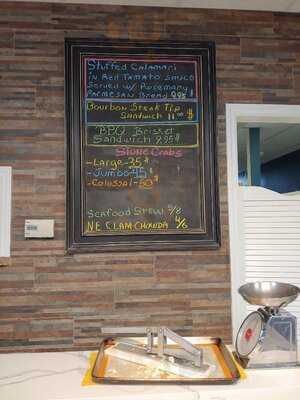 Stuffed Calamari
in Red Tomato sauce
Served w/ Rosemary
Parmesan Bread 9.95 $
Bourbon Steak Tip
Sandwich 11.00 $
BBQ Brisket
Sandwich 9.95 $
Stone Crabs
-Large-35 $
-Jumbo-45 $
-Colossal-50 $
Seafood Stew 5/8
N E CLAM CHOWDA 4/6